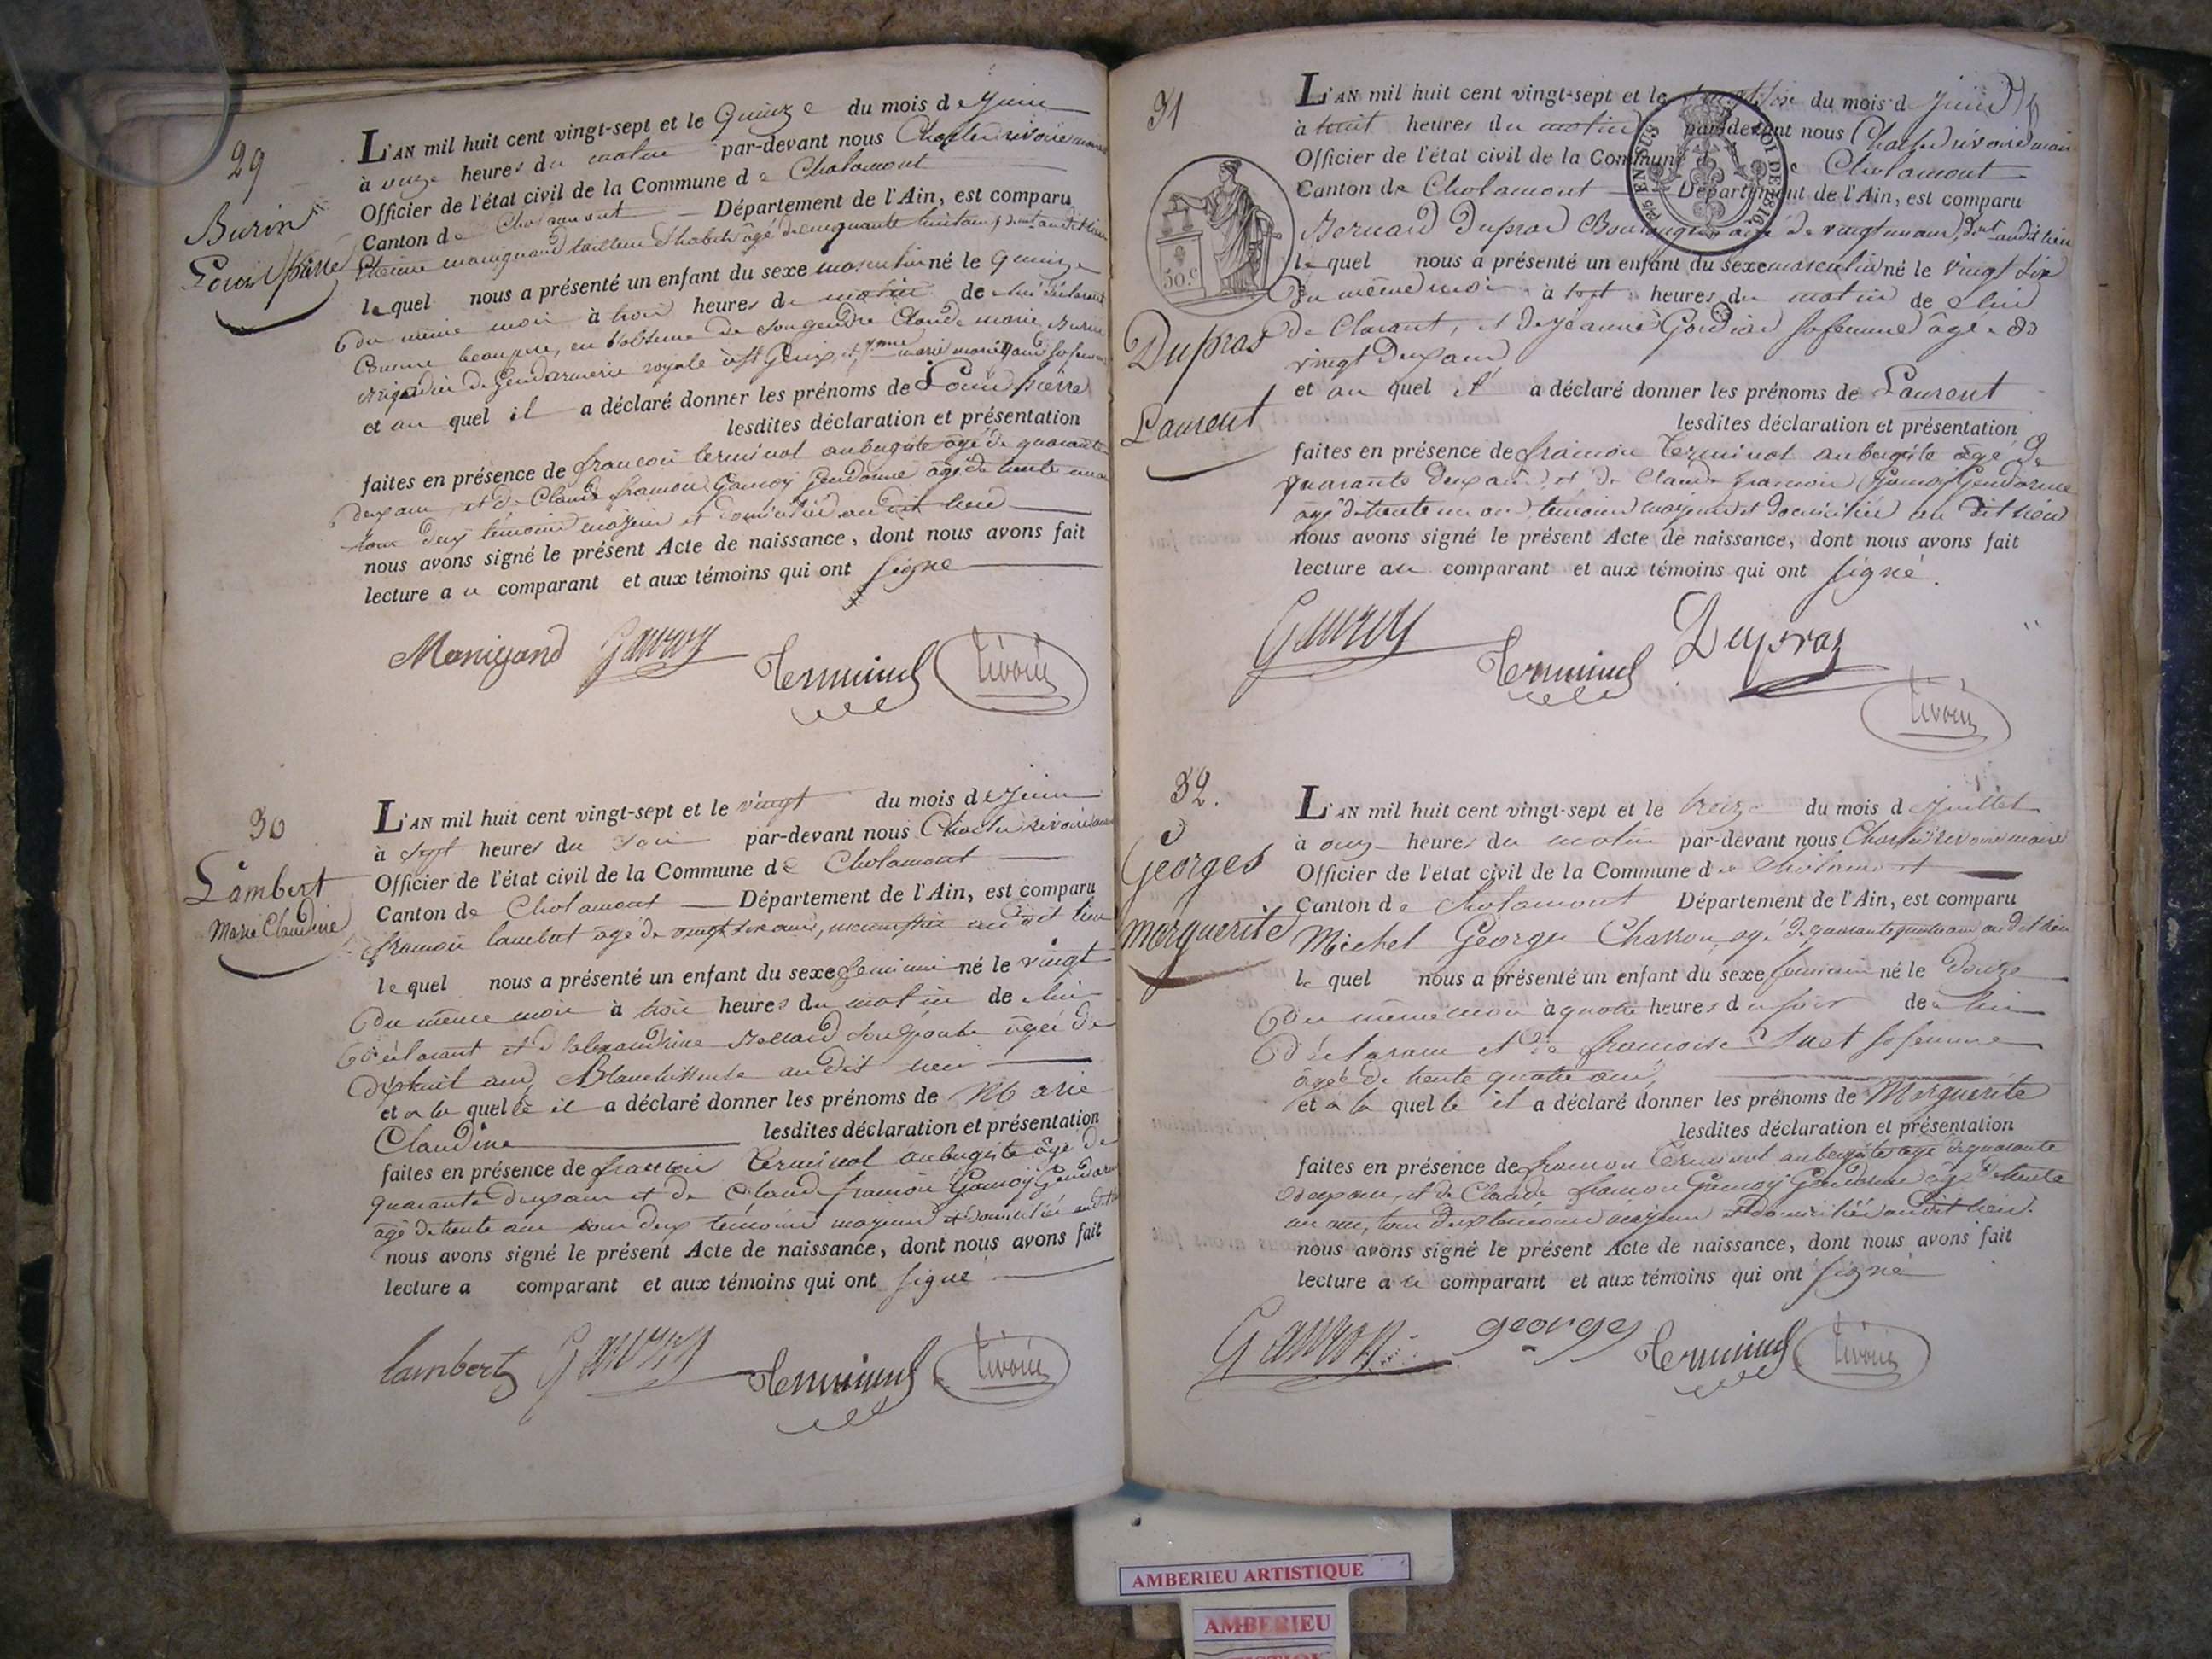 29
Burin
Louis Pierre
L'AN mil huit cent vingt-sept et le Quinze du mois de Juin
à onze heures du matin par-devant nous Charles rivoire maire
Officier de l'état civil de la Commune de Chalamont
Canton de Chalamont Département de l'Ain, est comparu
Etienne manigand tailleur d'habits âgé de cinquante huit ans,
lequel nous a présenté un enfant du sexe masculin né le quinze
du même mois à trois heures du matin de lui déclarant
Comme beaupere, en l'absence de son gendre Claude marie Burin
Brigadier de Gendarmerie royale à St Genix, et
et au quel il a déclaré donner les prénoms de Louis pierre
lesdites déclaration et présentation
faites en présence de francois terminal aubergiste âgé de quarante
deux ans, et de Claude francois Gauroy Gendarme âgé de trente
tous deux témoins majeurs et domiciliés au dit lieu
nous avons signé le présent Acte de naissance, dont nous avons fait
lecture au comparant et aux témoins qui ont signé
Manigand Gauroy Terminal rivoire
30
Lambert
Marie Claudine
L'AN mil huit cent vingt-sept et le vingt du mois de Juin
à sept heures du soir par-devant nous Charles rivoire maire
Officier de l'état civil de la Commune de Chalamont
Canton de Chalamont Département de l'Ain, est comparu
francois lambert âgé de vingt six ans, au dit lieu
lequel nous a présenté un enfant du sexe feminin né le vingt
du même mois à trois heures du matin de lui
déclarant et d'alexandrine son épouse âgée de
dix huit ans, Blanchisseuse au dit lieu
et a la quelle il a déclaré donner les prénoms de Marie
Claudine lesdites déclaration et présentation
faites en présence de francois terminal aubergiste âgé de
quarante deux ans et de Claude francois Gauroy Gendarme
âgé de trente ans tous deux témoins majeurs et domiciliés au dit
nous avons signé le présent Acte de naissance, dont nous avons fait
lecture a comparant et aux témoins qui ont signé
lambert Gauroy Terminal rivoire
31
50 c.
Dupras
Laurent
L'AN mil huit cent vingt-sept et le vingt six du mois de Juin
à huit heures du matin par-devant nous Charles rivoire maire
Officier de l'état civil de la Commune de Chalamont
Canton de Chalamont Département de l'Ain, est comparu
Bernard Dupras Boulanger âgé de vingt un ans, audit lieu
lequel nous a présenté un enfant du sexe masculin né le vingt six
du même mois à sept heures du matin de lui
declarant, et de Jeanne sa femme âgée de
vingt deux ans
et au quel il a déclaré donner les prénoms de Laurent
lesdites déclaration et présentation
faites en présence de francois terminal aubergiste âgé de
quarante deux ans, et de Claude francois Gauroy Gendarme
âgé de trente un ans témoins majeurs et domiciliés au dit lieu
nous avons signé le présent Acte de naissance, dont nous avons fait
lecture au comparant et aux témoins qui ont signé.
Gauroy Terminal Dupraz
rivoire
32.
Georges
Marguerite
L'AN mil huit cent vingt-sept et le treize du mois de Juillet
à onze heures du matin par-devant nous Charles rivoire maire
Officier de l'état civil de la Commune de Chalamont
Canton de Chalamont Département de l'Ain, est comparu
Michel Georges Charron, âgé de quarante ans au dit lieu
lequel nous a présenté un enfant du sexe feminin né le douze
du même mois à quatre heures du soir de lui
déclarant et de francoise sa femme
âgée de trente quatre ans,
et a la quelle il a déclaré donner les prénoms de Marguerite
lesdites déclaration et présentation
faites en présence de francois terminal aubergiste âgé de quarante
deux ans, et de Claude francois Gauroy Gendarme âgé de trente
un ans, tous deux témoins majeurs et domiciliés au dit lieu.
nous avons signé le présent Acte de naissance, dont nous avons fait
lecture au comparant et aux témoins qui ont signé
Gauroy georges Terminal rivoire
AMBERIEU ARTISTIQUE
AMBERIEU